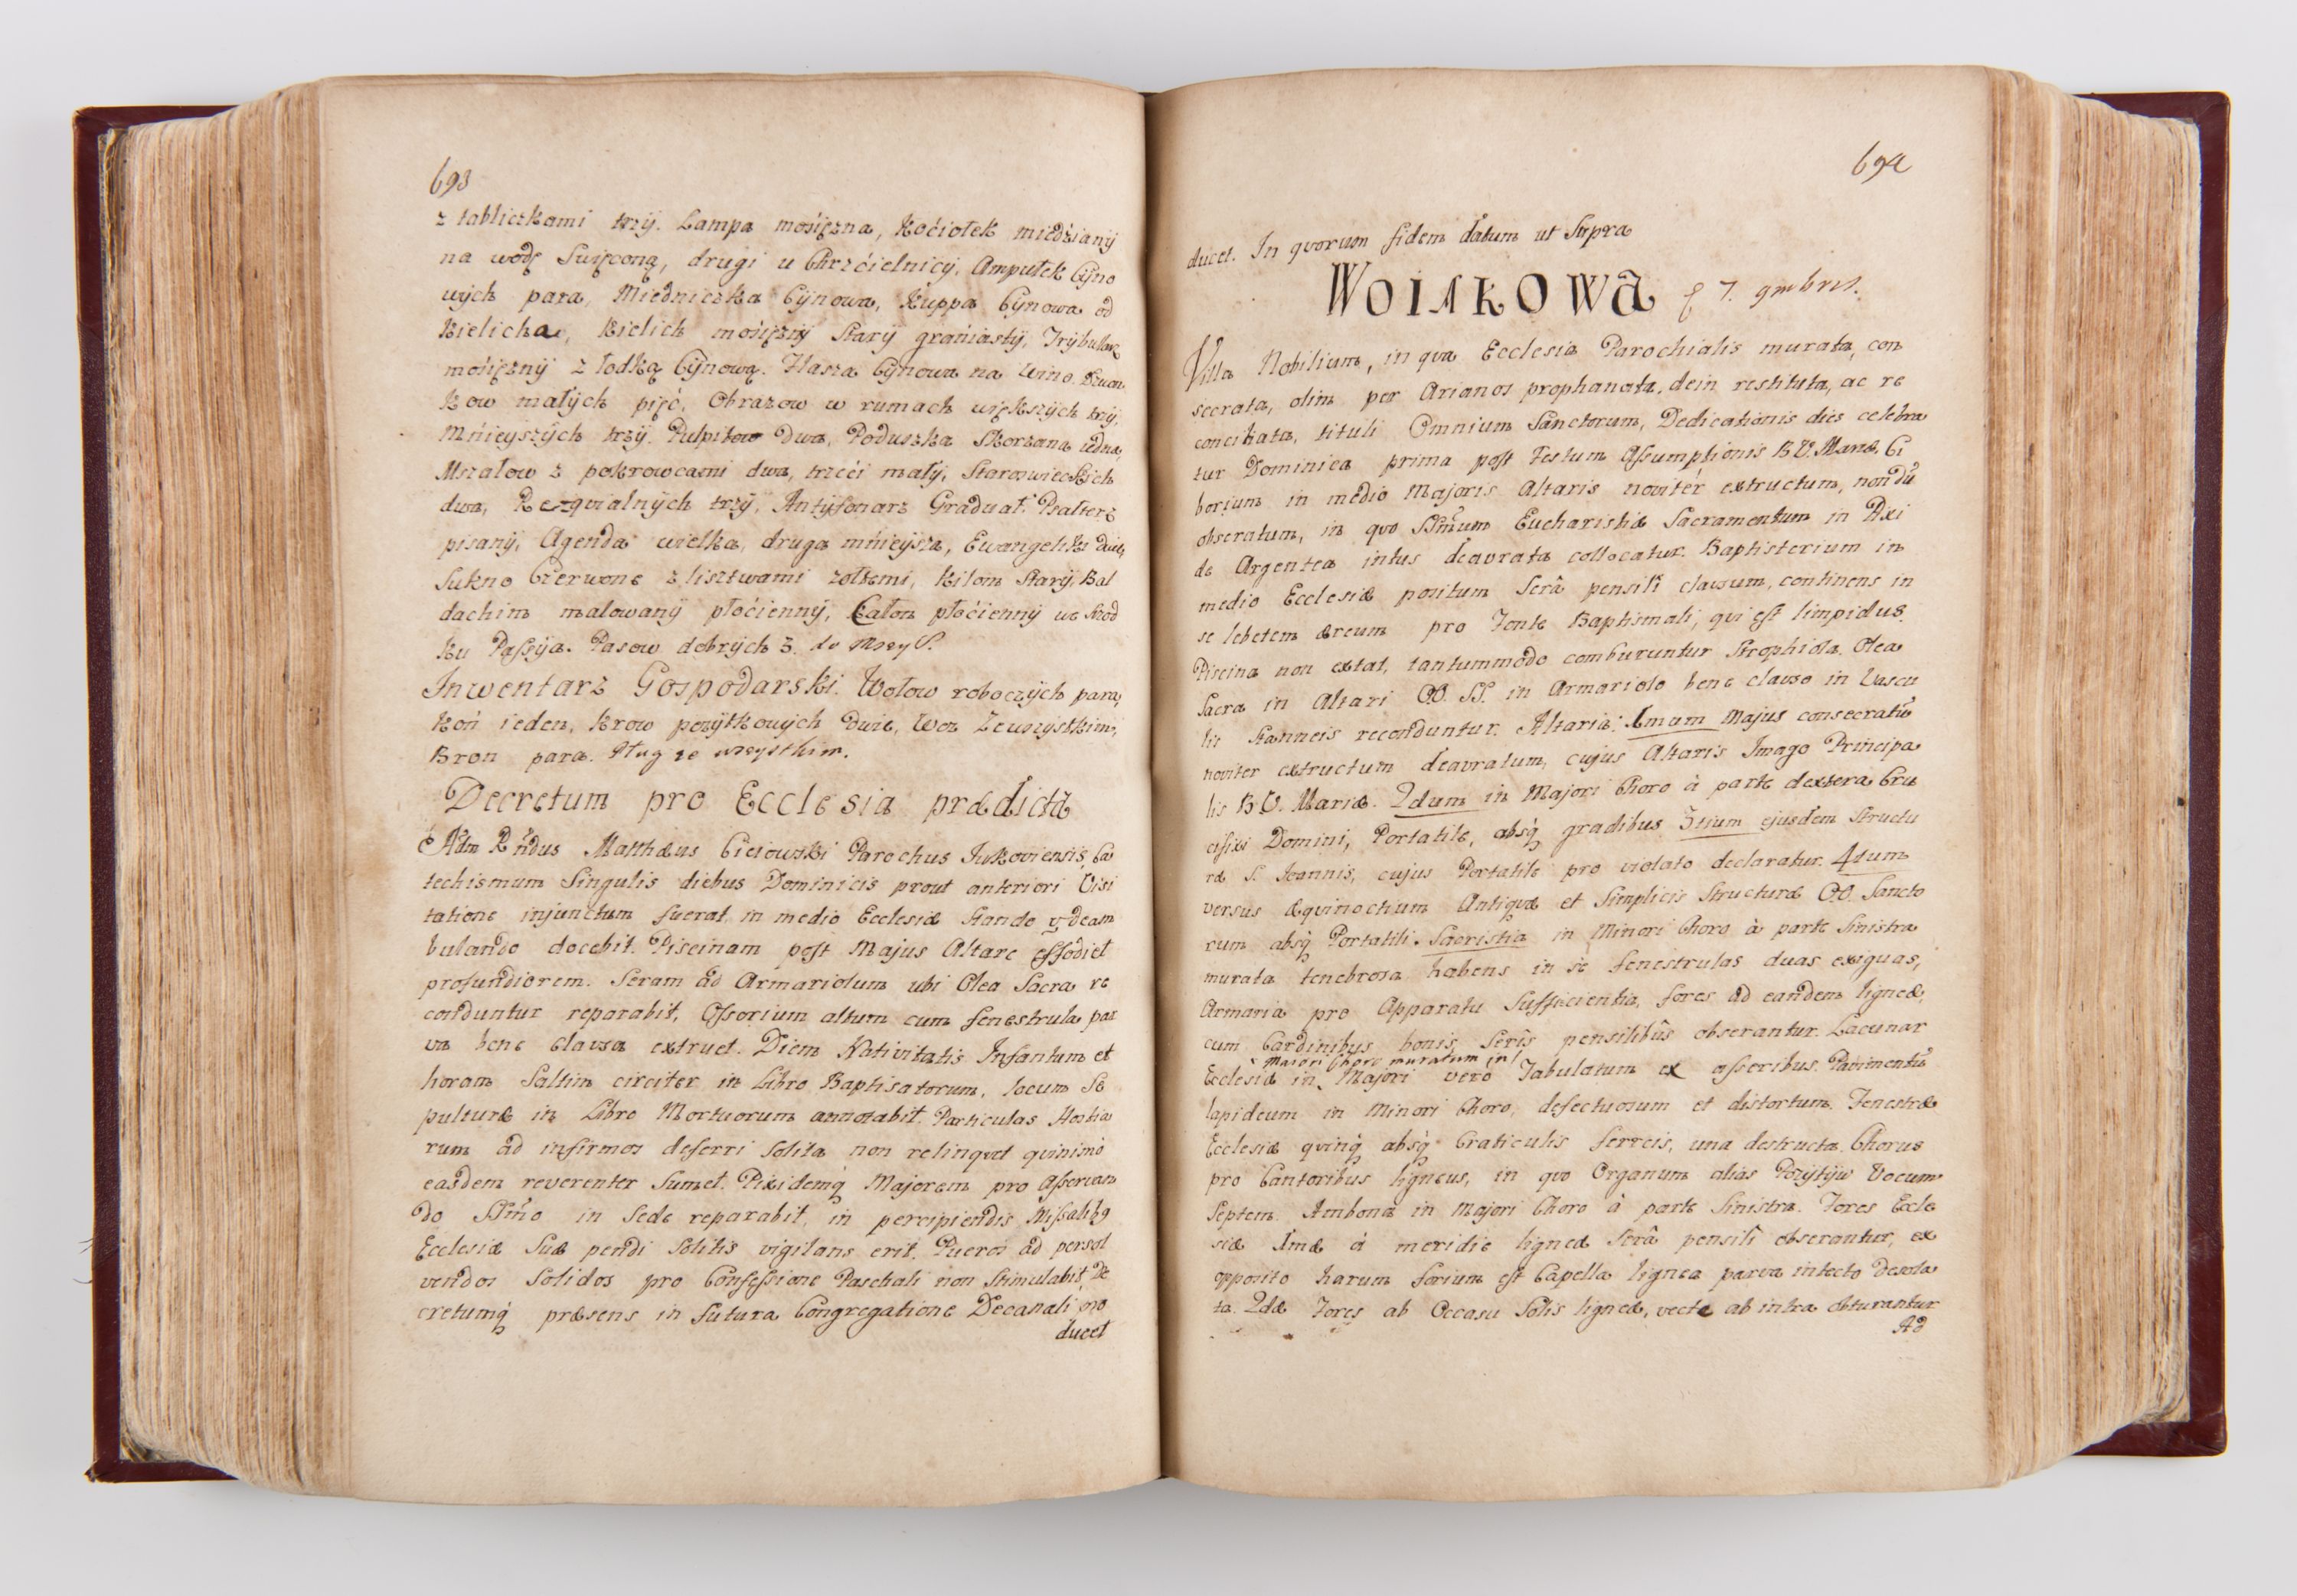 693
z tabliczkami trzÿ. Lampa mosiężna, Kociołek miedzianÿ
na wodę Swięconą, drugi u Chrzćielnicÿ, Ampułek Cÿno
wÿch para, Miedniczka Cÿnowa, Kuppa Cÿnowa od
Kielicha, Kielich mosiężnÿ Starÿ graniastÿ, Trÿbularz
mosiężnÿ z łodką Cÿnową. Flasza Cÿnowa na wino. Dzwon
kow małÿch pięć, Obrazow w ramach większÿch trzÿ,
Mnieyszÿch trzÿ. Pulpitow dwa, Poduszka Skorzana iedna,
Mszałow z pokrowcami dwa, trzeci małÿ, Staroswieckich
dwa, Reqvialnÿch trzÿ, Antÿfonarz Graduał. Psałterz
pisanÿ, Agenda wielka, druga mnieÿsza, Ewangeliki dwie,
Sukno Czerwone z lisztwami zołtemi, Kilom Starÿ, Bal
dachim malowanÿ płoćiennÿ, Całon płoćiennÿ we Srod
ku Paſsÿa. Pasow dobrÿch 3. do Mszy S.
Inwentarz Gospodarski. Wołow roboczÿch para,
Koń ieden, Krow pozÿtkowÿch dwie, Woz Zewszÿstkim,
Bron para. Pług ze wszystkim.
Decretum pro Ecclesia prædicta
Adm Rndus Matthæus Ciciowski Parochus Jukoviensis, Ca
techismum Singulis diebus Dominicis prout anteriori Visi
tatione injunctum fuerat in medio Ecclesiæ Stando et deam
bulando docebit. Piscinam post Majus Altare effodiet
profundiorem. Seram ad Armariolum ubi Olea Sacra re
conduntur reparabit, Oſsorium altum cum fenestrula par
va bene clausa extruet. Diem Nativitatis Infantum et
horam Saltim circiter in Libro Baptisatorum, locum Se
pulturæ in Libro Mortuorum annotabit. Particulas Hostia
rum ad infirmos deferri solita non relinqvet qvinimo
easdem reverenter Sumet. Pixidemq́ Majorem pro Aſservan
do SSmo in Sede reparabit, in percipiendis Miſsalibg
Ecclesiæ Suæ pendi Solitis vigilans erit. Pueros ad persol
vendos Solidos pro Confeſsione Paschali non Stimulabit, De
cretumq́ præsens in futura Congregatione Decanali pro
ducet
694
ducet. In qvorum fidem datum ut Supra
WOIAKOWA 7. 9mbris.
Villa Nobilium, in qva Ecclesia Parochialis murata, con
secrata, olim per Arianos prophanata, dein restituta, ac re
conciliata, tituli Omnium Sanctorum, Dedicationis dies celebra
tur Dominica prima post Festum Aſsumptionis B.V. Mariæ. Ci
borium in medio Majoris Altaris noviter extructum, nondũ
obseratum, in qvo SSmum Eucharistiæ Sacramentum in Pixi
de Argentea intus deavrata collocatur. Baptisterium in
medio Ecclesiæ positum Serâ pensili clausum, continens in
se lebetem æreum pro Fonte Baptismali, qvi est limpidus.
Piscina non extat, tantummodo comburuntur Strophiola. Olea
Sacra in Altari OO. SS. in Armariolo bene clauso in Vascu
lis Stanneis reconduntur. Altaria: Imum Majus consecratũ
noviter extructum deavratum, cujus Altaris Imago Principa
lis B.V. Mariæ. 2dum in Majori Choro à parte dextera Cru
cifixi Domini, Portatile, absq́ gradibus. 3tium ejusdem Structu
ræ S. Joannis, cujus Portatile pro violato declaratur. 4tum
versus Æqvinoctium Antiqvæ et Simplicis Structuræ OO. Sancto
rum absq́ Portatili. Sacristia in Minori Choro à parte Sinistra
murata tenebrosa habens in se fenestrulas duas exiguas,
Armaria pro Apparatu Sufficientia, fores ad eandem ligneæ,
cum Cardinibus bonis Seris pensilibus obserantur. Lacunar
Maiori Choro muratum in
Ecclesiæ in Majori vero Tabulatum ex aſseribus. Pavimentũ
lapideum in Minori Choro, defectuosum et distortum. Fenestræ
Ecclesiæ qvinq́ absq́ Craticulis ferreis, una destructa. Chorus
pro Cantoribus ligneus, in qvo Organum alias Pozÿtÿw Vocum
Septem. Ambona in Majori Choro à parte Sinistra. Fores Eccle
siæ Imæ à meridie ligneæ Serâ pensili obserantur, ex
opposito harum forium est Capella lignea parva intecto desola
ta. 2dæ Fores ab Occasu Solis ligneæ, vecte ab intra obturantur
Ad